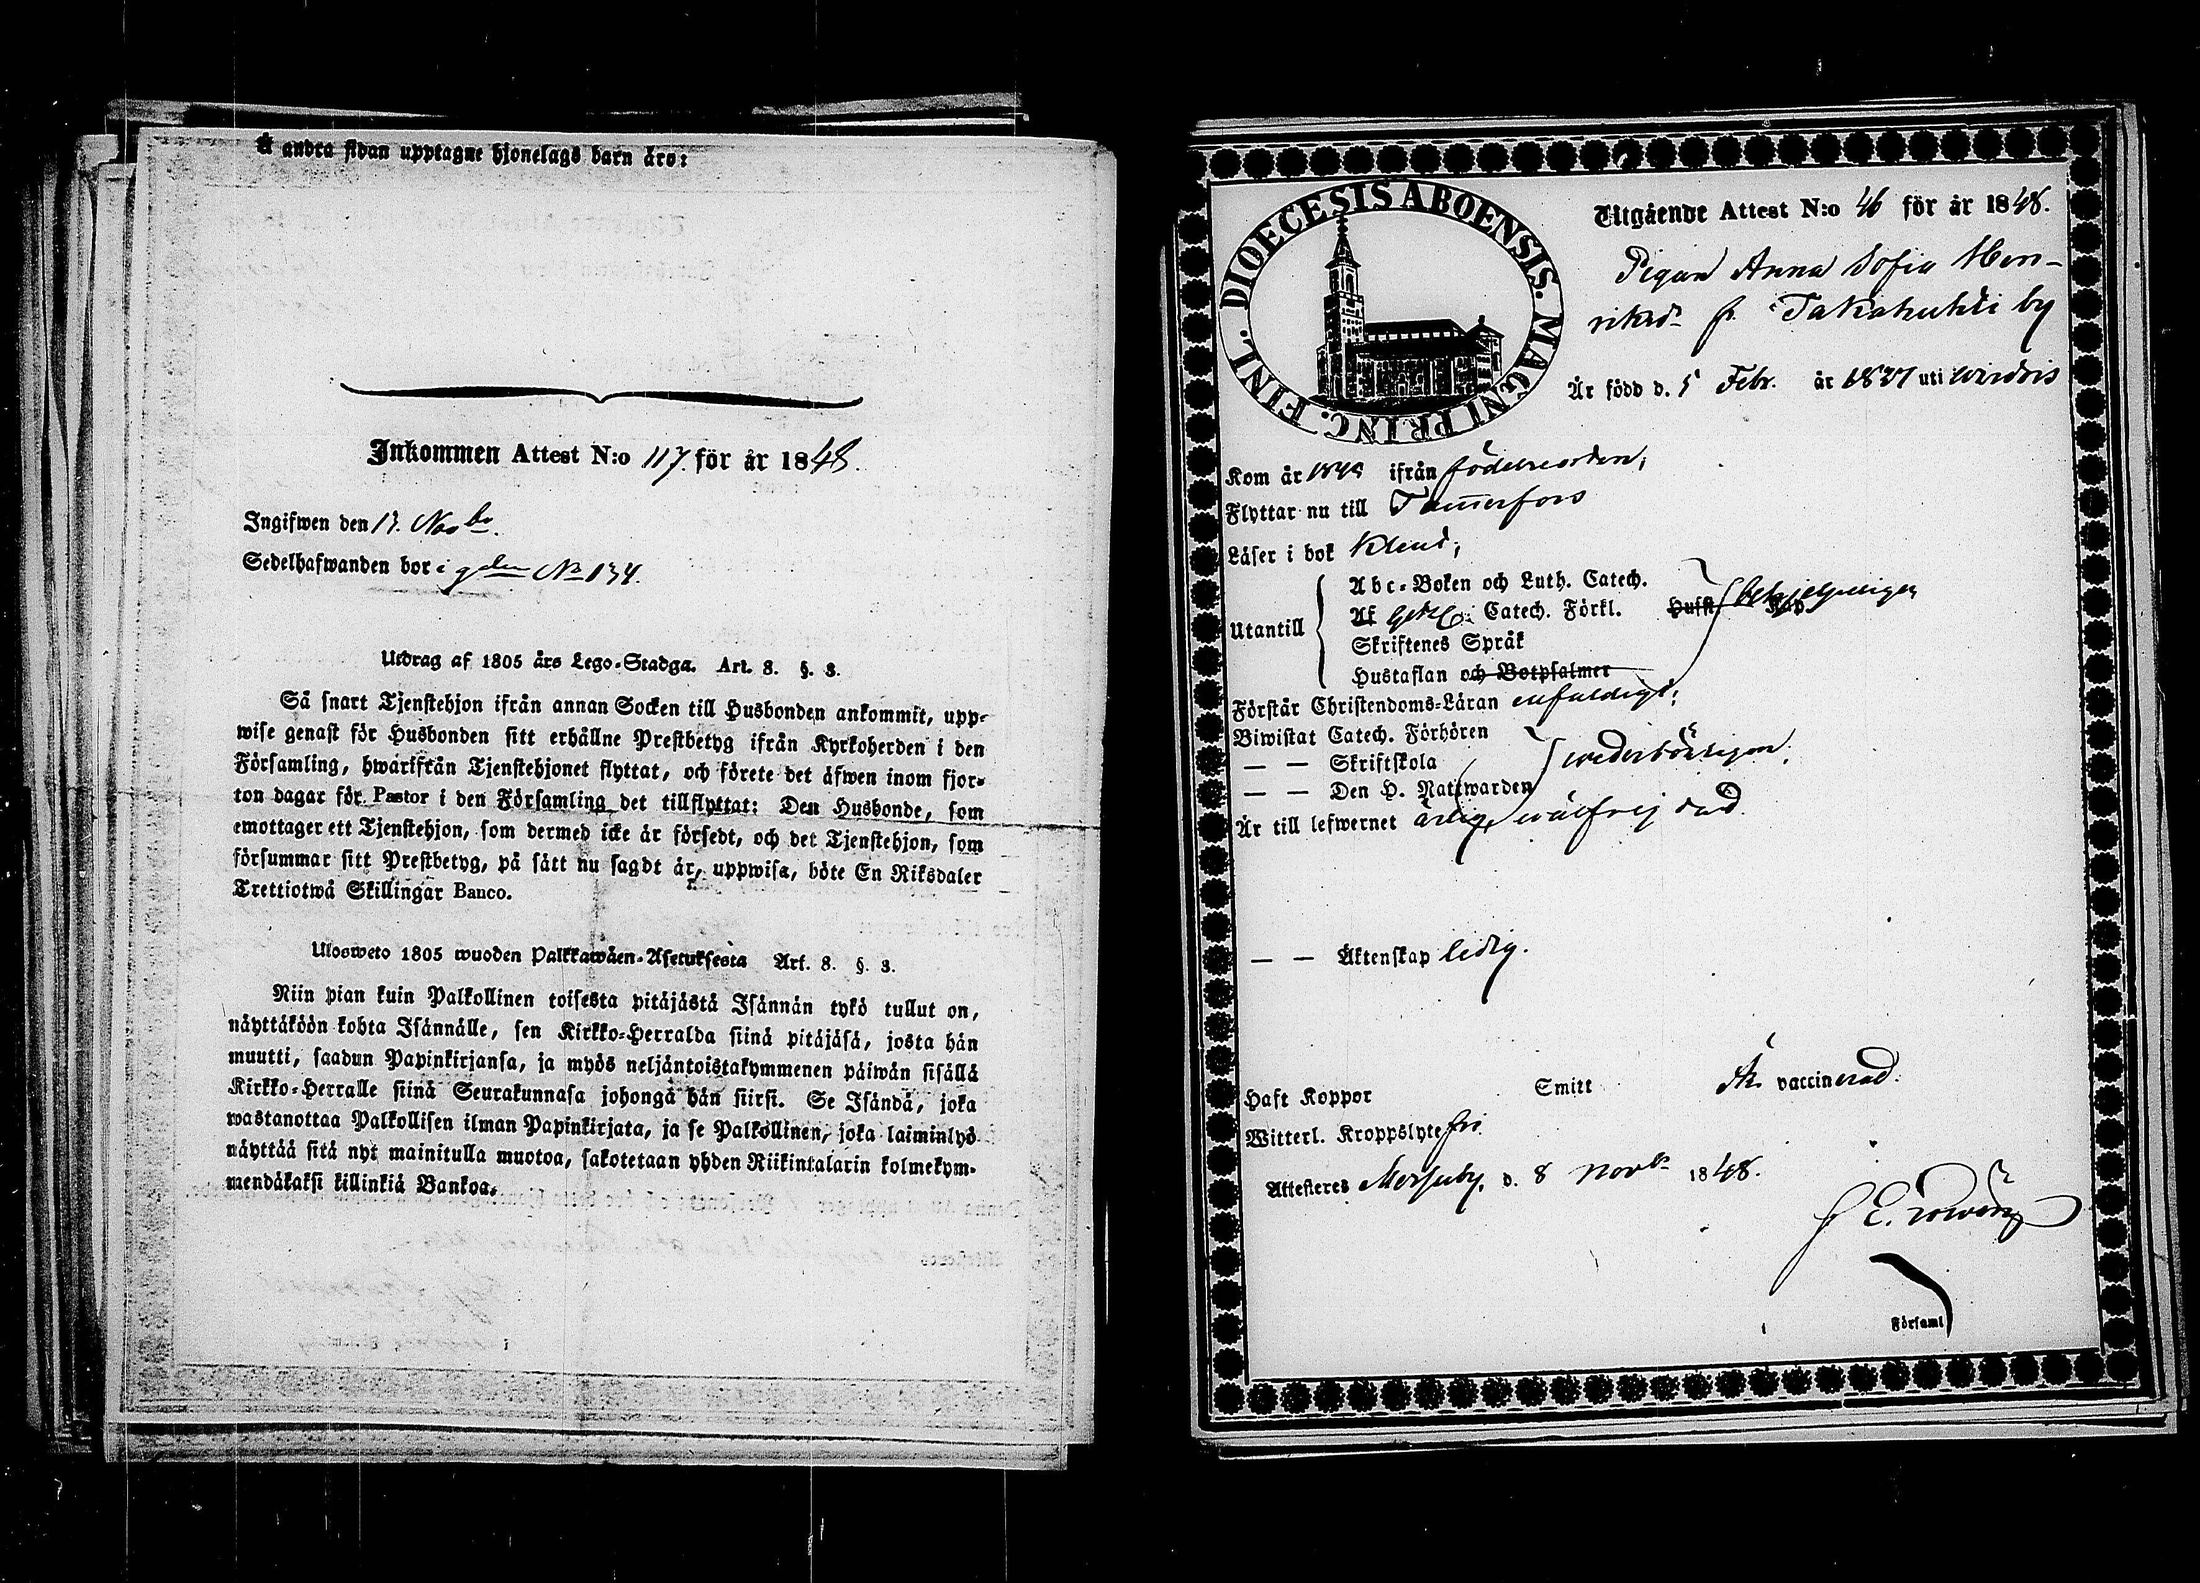 Å andra sidan upptagne hjonelags barn äro:
Inkommen Attest N:o 117. för år 1848.
Ingifwen den 13. Novbr.
Sedelhafwanden bor i gden No 134.
Utdrag af 1805 års Lego-Stadga. Art. 8. §. 3.
Så snart Tjenstehjon ifrån annan Socken till Husbonden ankommit, upp-
wise genast för Husbonden sitt erhållne Prestbetyg ifrån Kyrkoherden i den
Församling, hwarifrån Tjenstehjonet flyttat, och förete det äfwen inom fjor-
ton dagar för Pastor i den Församling det tillflyttat: Den Husbonde, som
emottager ett Tjenstehjon, som dermed icke är försedt, och det Tjenstehjon, som
försummar sitt Prestbetyg, på sätt nu sagdt är, uppwisa, böte En Riksdaler
Trettiotwå Skillingar Banco.
Ulosweto 1805 wuoden Palkkawäen-Asetuksesta Art. 8. §. 3.
Niin pian kuin Palkollinen toisesta pitäjästä Isännän tykö tullut on,
näyttäköön kohta Isännälle, sen Kirkko-Herralda siinä pitäjäsä, josta hän
muutti, saadun Papinkirjansa, ja myös neljäntoistakymmenen päiwän sisällä
Kirkko-Herralle siinä Seurakunnasa johonga hän siirsi. Se Isändä, joka
wastanottaa Palkollisen ilman Papinkirjata, ja se Palkollinen, joka laiminlyö
näyttää sitä nyt mainitulla muotoa, sakotetaan yhden Riikintalarin kolmekym-
mendäkaksi killinkiä Bankoa.
DIOECESIS ABOENSIS. MAGNI PRINC. FINL.
Utgående Attest N:o 46 för år 1848.
Pigan Anna Sofia Hen-
riksd. fr. Takahuhti by
Är född d. 5 Febr. år 1827 uti Wirdois
Kom år ifrån födelseorten;
Flyttar nu till Tammerfors
Läser i bok klent;
Utantill
Abc-Boken och Luth. Catech.
Af Catech. Förkl. Husst behjelpligen
Skriftenes Språk
Hustaflan och Botpsalmer
Förstår Christendoms-Läran enfaldigt;
Biwistat Catech. Förhören
— — Skriftskola wederbörligen;
— — Den H. Nattwarden
Är till lefwernet ärlig, wälfrejdad.
— — Äktenskap ledig.
Haft Koppor Smitt Är vaccinerad.
Witterl. Kroppslyte fri
Attesteres Messuby, d. 8 Novbr 1848.
Församl